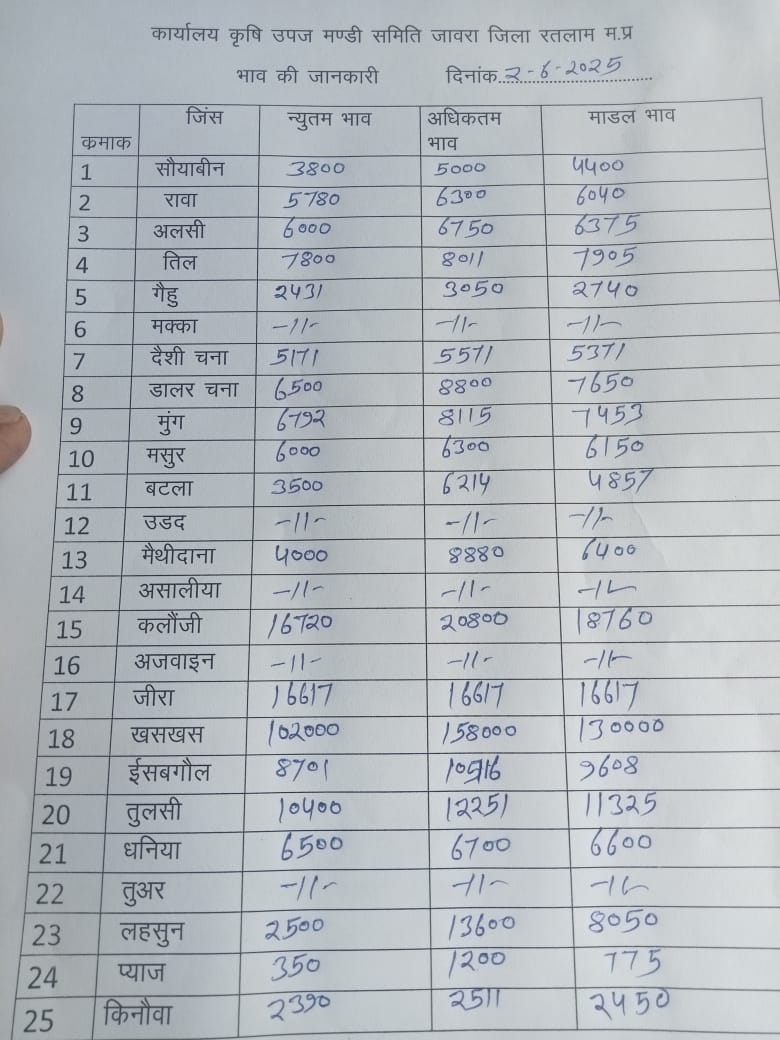 कार्यालय कृषि उपज मण्डी समिति जावरा जिला रतलाम म.प्र
भाव की जानकारी दिनांक 2-6-2025
कमाक जिंस न्युतम भाव अधिकतम भाव माडल भाव
1 सौयाबीन 3800 5000 4400
2 रावा 5780 6300 6040
3 अलसी 6000 6750 6375
4 तिल 7800 8011 7905
5 गैहु 2431 3050 2740
6 मक्का -11- -11- -11-
7 दैशी चना 5171 5571 5371
8 डालर चना 6500 8800 7650
9 मुंग 6792 8115 7453
10 मसुर 6000 6300 6150
11 बटला 3500 6214 4857
12 उडद -11- -11- -11-
13 मैथीदाना 4000 8880 6400
14 असालीया -11- -11- -11-
15 कलौंजी 16720 20800 18760
16 अजवाइन -11- -11- -11-
17 जीरा 16617 16617 16617
18 खसखस 102000 158000 130000
19 ईसबगौल 8701 9608
20 तुलसी 10400 12251 11325
21 धनिया 6500 6700 6600
22 तुअर -11- -11- -11-
23 लहसुन 2500 13600 8050
24 प्याज 350 1200 775
25 किनौवा 2390 2511 2450